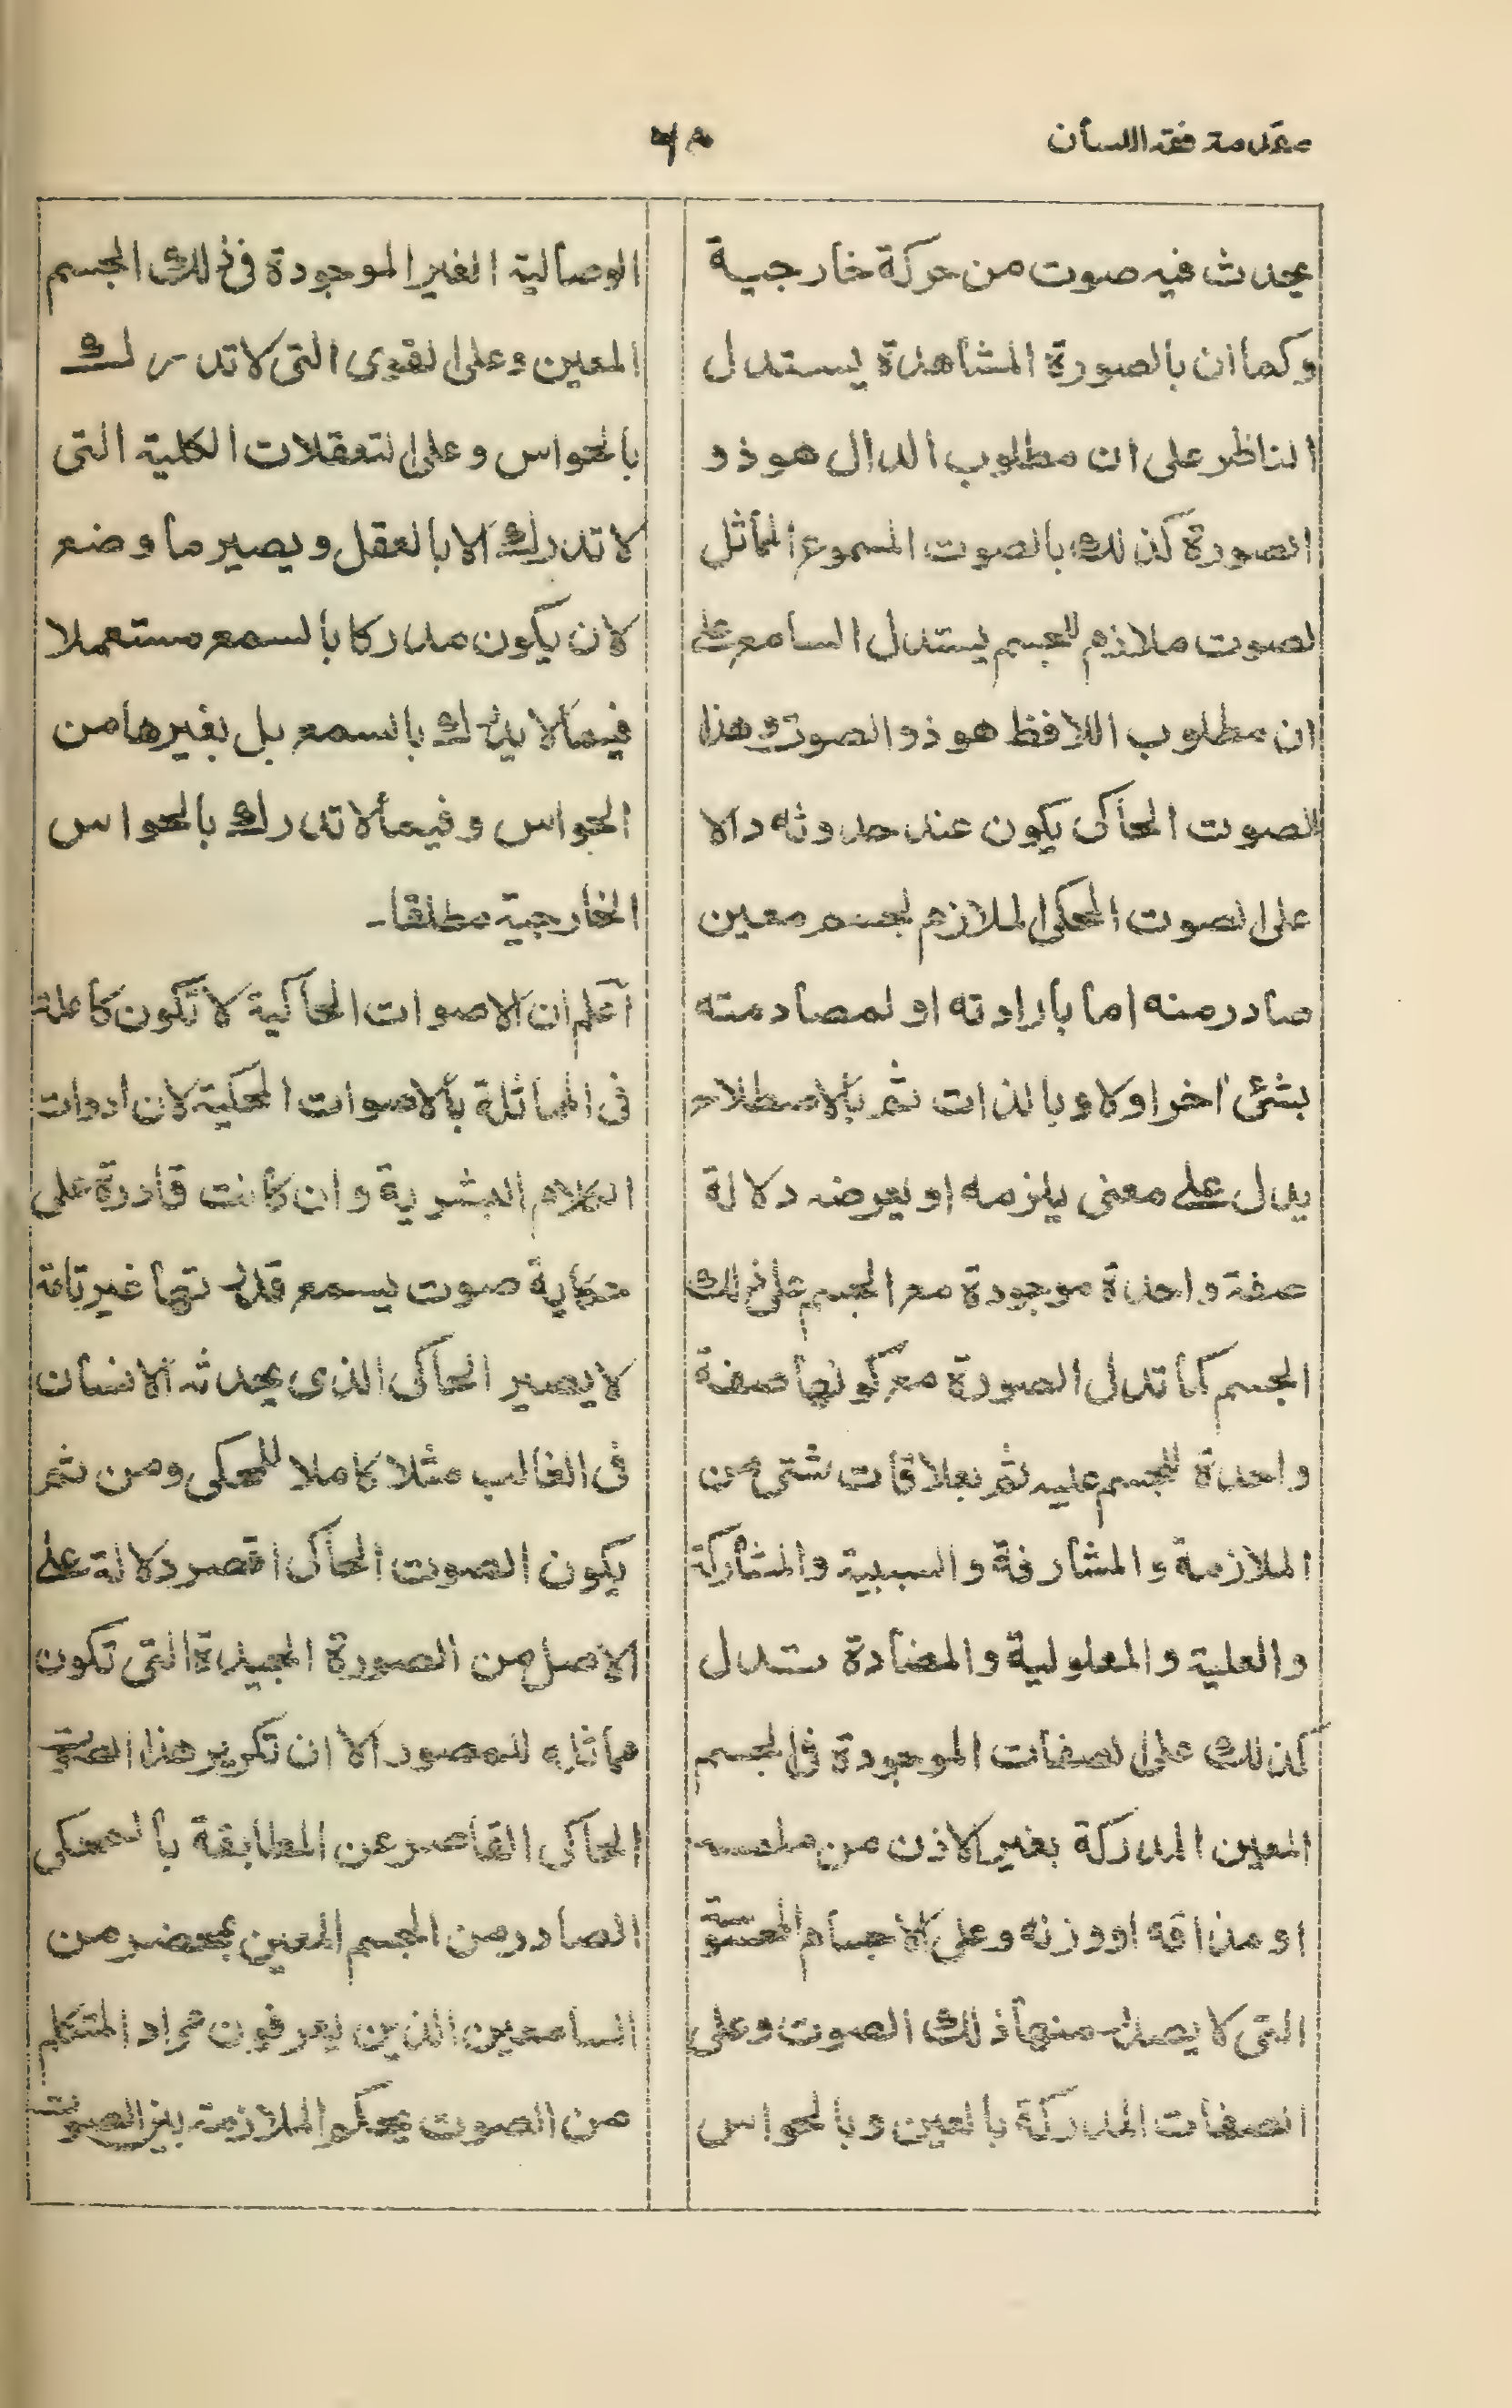 مقدمة فقه اللسان
٦٨
يحدث فيه صوت من حركة خارجية
وكما ان بالصورة المشاهدة يستدل
الناظر على ان مطلوب الدال هو ذو
الصورة كذلك بالصوت المسموع المماثل
لصوت ملازم للجسم يستدل السامع على
ان مطلوب اللافظ هو ذو الصوت وهذا
الصوت الحاكى يكون عند حدوثه دالا
على الصوت المحكى الملازم لجسم معين
صادر منه اما بارادته او لمصادمته
بشئ اخر اولا وبالذات ثم بالاصطلاح
يدل على معنى يلزمه او يعرضه دلالة
صفة واحدة موجودة مع الجسم على ذلك
الجسم كما تدل الصورة مع كونها صفة
واحدة للجسم عليه ثم بعلاقات شتى من
الملازمة والمشارفة والسببية والمشاركة
والعلية والمعلولية والمضادة تدل
كذلك على الصفات الموجودة فى الجسم
المعين المدركة بغير الاذن من ملمسه
او مذاقه او وزنه وعلى الاجسام
التى لا يصدر منها ذلك الصوت وعلى
الصفات المدركة بالعين وبالحواس
الوصالية الغير الموجودة فى ذلك الجسم
المعين وعلى القوى التى لا تدرك
بالحواس وعلى التعقلات الكلية التى
لا تدرك الا بالعقل ويصير ما وضع
لان يكون مدركا بالسمع مستعملا
فيما لا يدرك بالسمع بل بغيرها من
الحواس وفيما لا تدرك بالحواس
الخارجية مطلقا-
اعلم ان الاصوات الحاكية لا تكون كاملة
فى المماثلة بالاصوات المحكية لان ادوات
الكلام البشرية وان كانت قادرة على
حكاية صوت يسمع قدرتها غير تامة
لا يصير الحاكى الذى يحدثه الانسان
فى الغالب مثلا كاملا للمحكى ومن ثم
يكون الصوت الحاكى اقصر دلالة على
الاصل من الصورة الجيدة التى تكون
مماثله للمصور الا ان تكرير هذا الصوت
الحاكى القاصر عن المطابقة بالمحكى
الصادر من الجسم المعين بمحضر من
السامعين الذين يعرفون مراد المتكلم
من الصوت يحكم الملازمة بين الصوت